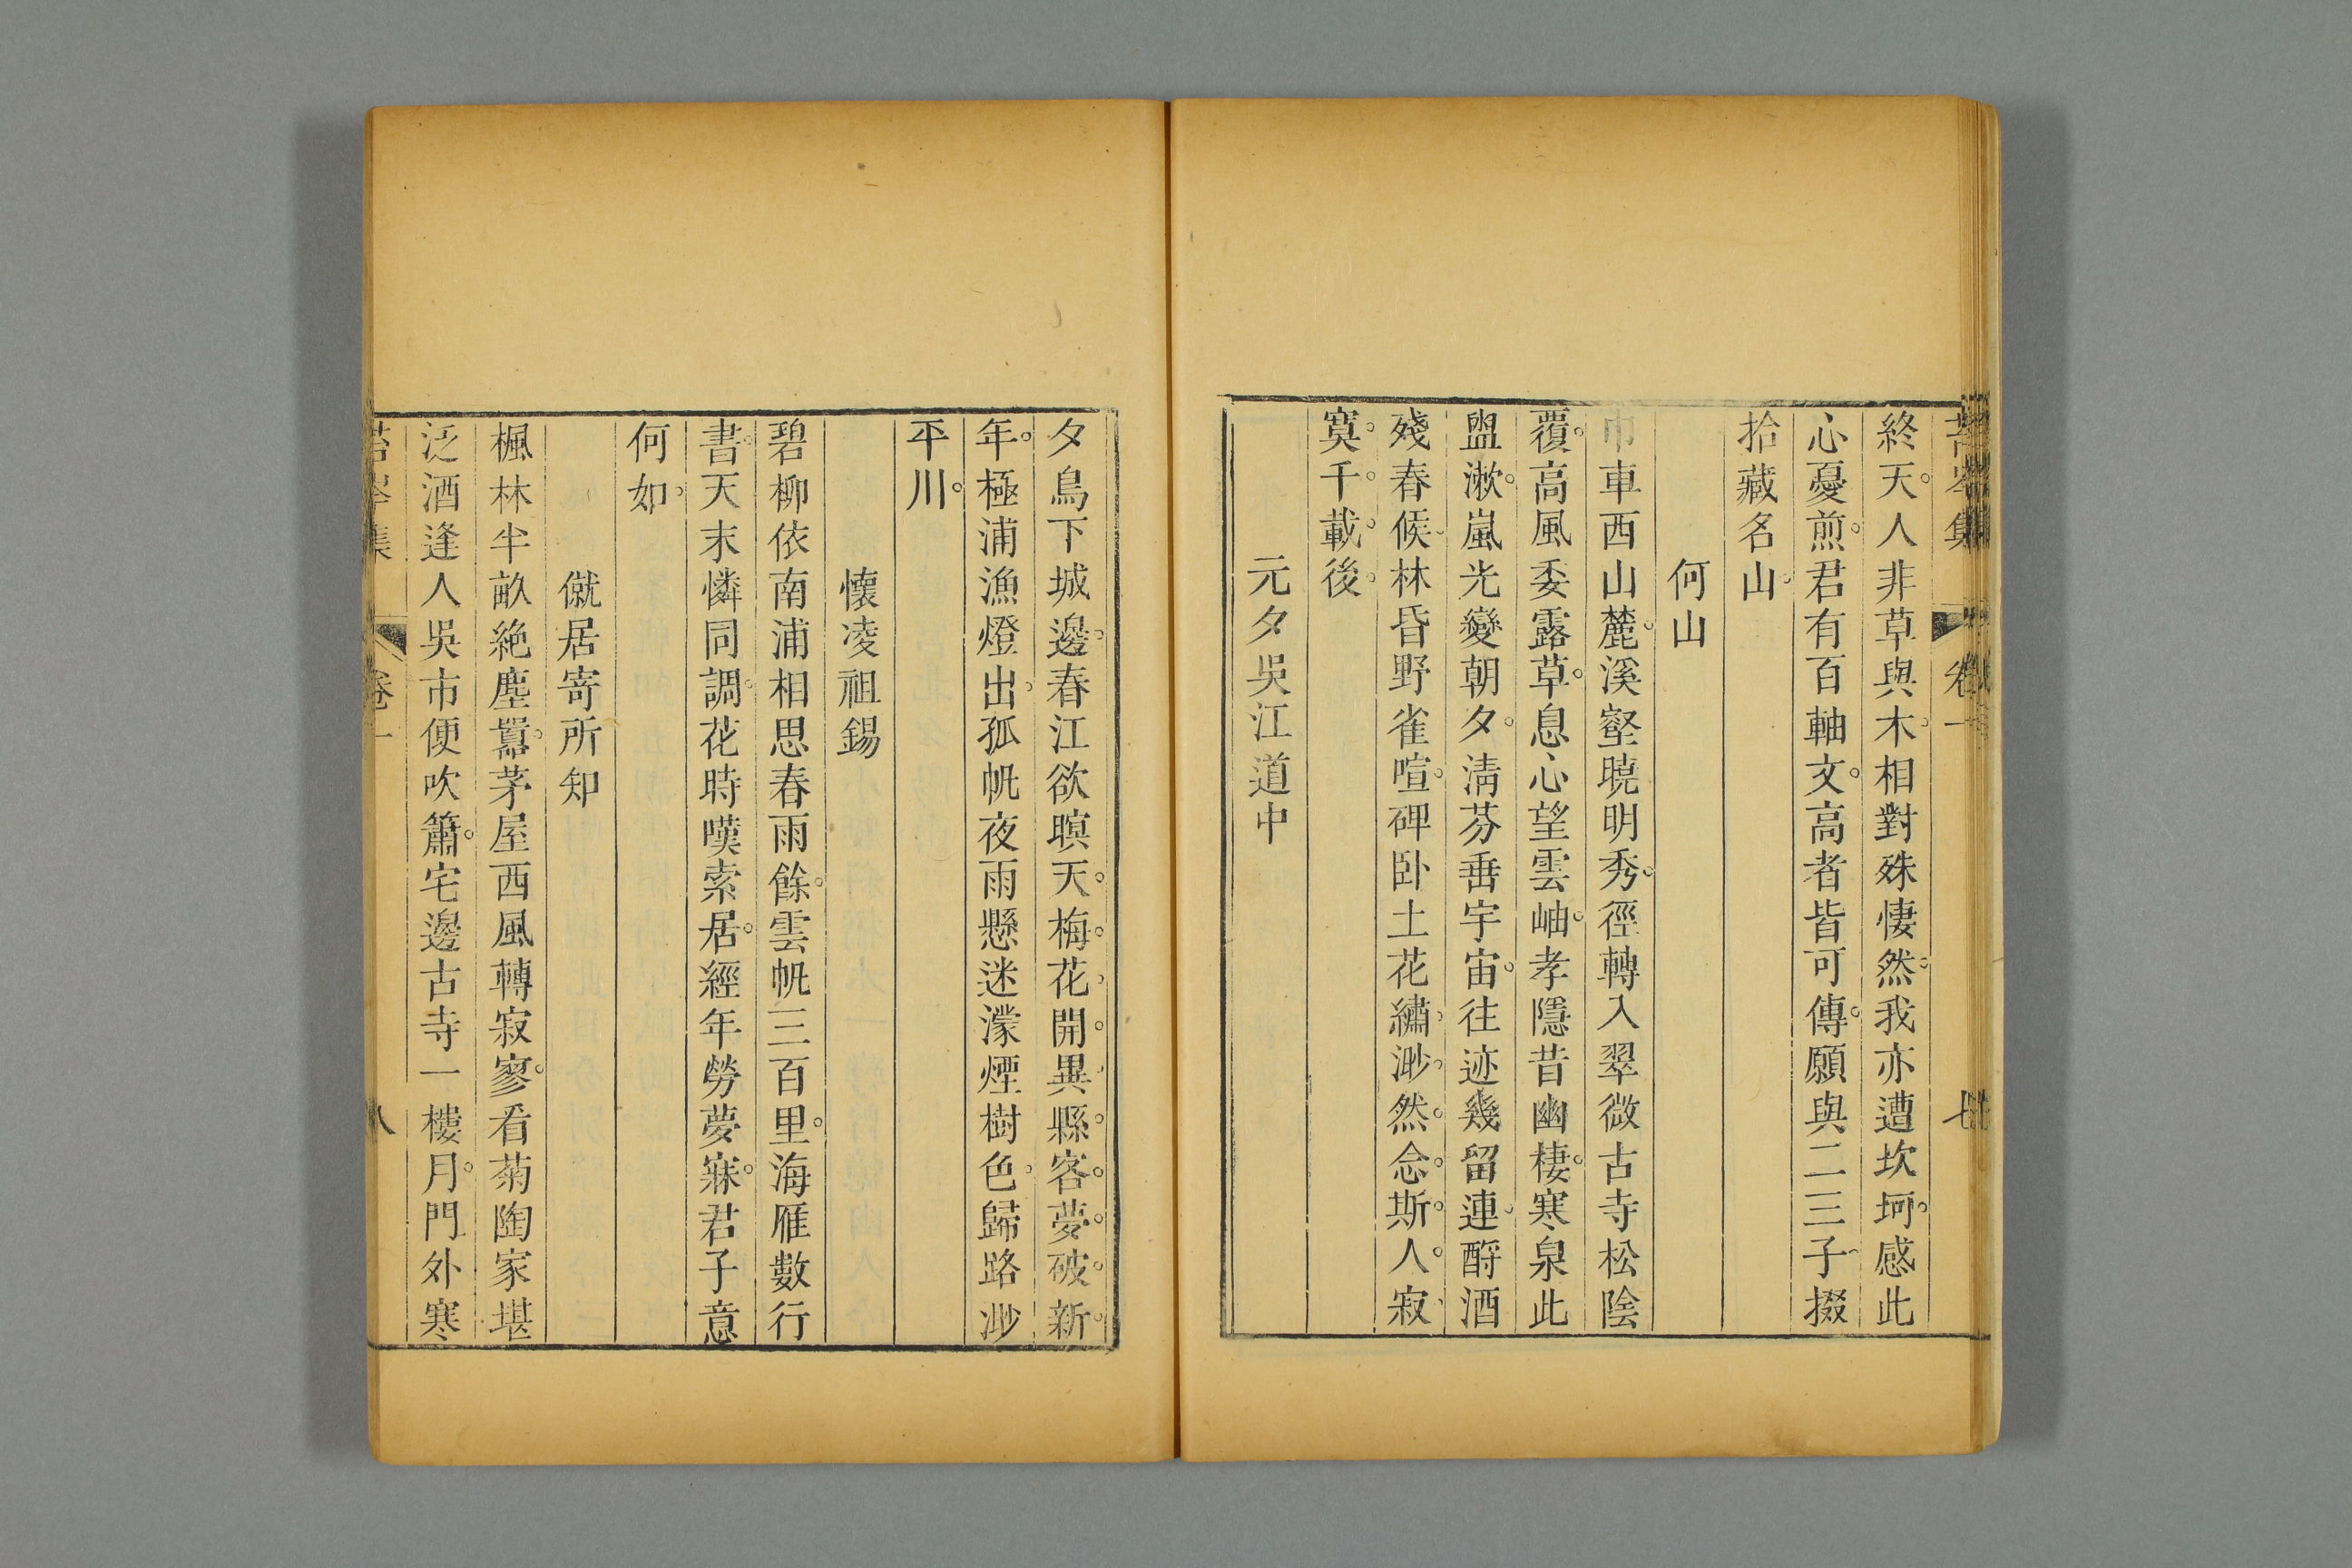 苔岑集 卷一 七
終天人非草與木相對殊悽然我亦遭坎坷感此
心憂煎君有百軸文高者皆可傳願與二三子掇
拾藏名山
何山
巾車西山麓溪壑曉明秀徑轉入翠微古寺松陰
覆高風委露草息心望雲岫孝隱昔幽棲寒泉此
盥漱嵐光變朝夕淸芬垂宇宙往迹幾留連酹酒
殘春候林昏野雀喧碑卧土花繡渺然念斯人寂
寞千載後
元夕吳江道中
夕鳥下城邊春江欲暝天梅花開異縣客夢破新
年極浦漁燈出孤帆夜雨懸迷濛煙樹色歸路渺
平川
懷凌祖錫
碧柳依南浦相思春雨餘雲帆三百里海雁數行
書天末憐同調花時嘆索居經年勞夢寐君子意
何如
僦居寄所知
楓林半畝絶塵囂茅屋西風轉寂寥看菊陶家堪
泛酒逢人吳市便吹簫宅邊古寺一樓月門外寒
苔岑集 卷一 八